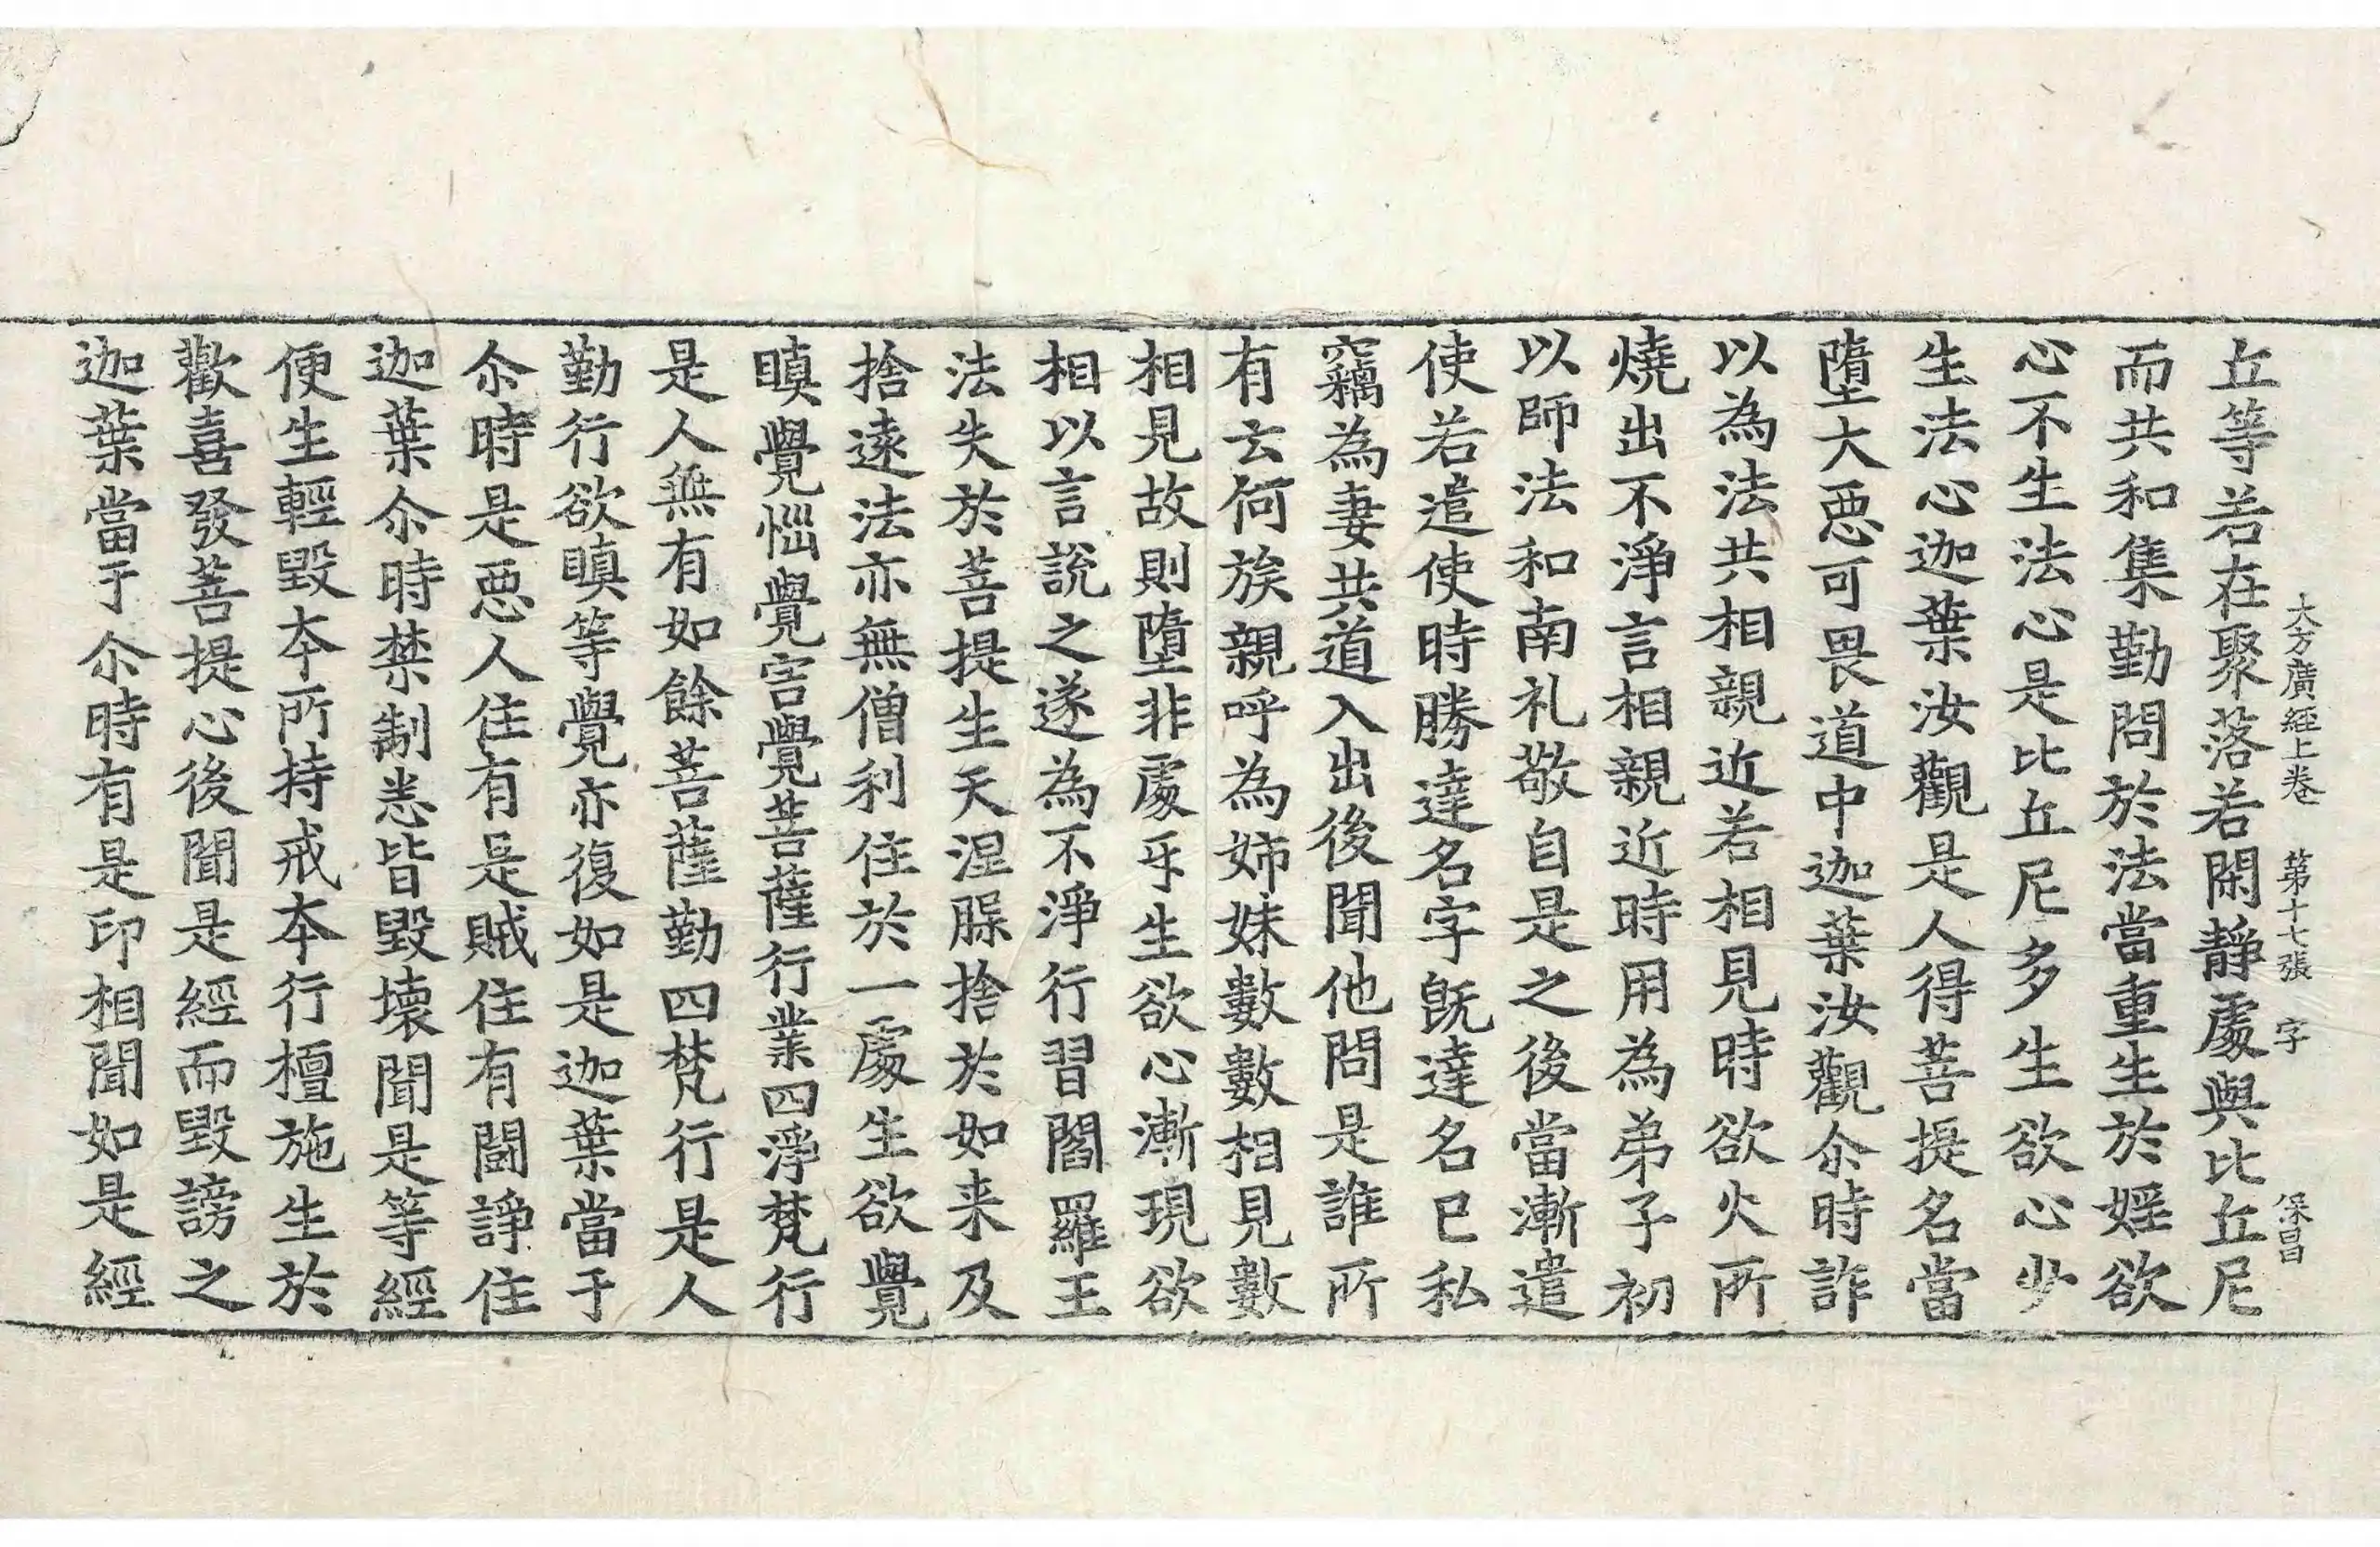 大方廣經上卷 第十七張 字 保昌
丘等若在聚落若閑靜處與比丘尼
而共和集勤問於法當重生於婬欲
心不生法心是比丘尼多生欲心少
生法心迦葉汝觀是人得菩提名當
墮大惡可畏道中迦葉汝觀尒時詐
以為法共相親近若相見時欲火所
燒出不淨言相親近時用為弟子初
以師法和南礼敬自是之後當漸遣
使若遣使時勝達名字旣達名已私
竊為妻共道入出後聞他問是誰所
有云何族親呼為姉妹數數相見數
相見故則墮非處𤓰生欲心漸現欲
相以言說之遂為不淨行習閻羅王
法失於菩提生天涅槃捨於如来及
捨遠法亦無僧利住於一處生欲覺
瞋覺惱覺害覺菩薩行業四淨梵行
是人無有如餘菩薩勤四梵行是人
勤行欲瞋等覺亦復如是迦葉當于
尒時是惡人住有是賊住有鬪諍住
迦葉尒時禁制悉皆毀壞聞是等經
便生輕毀夲所持戒夲行檀施生於
歡喜發菩提心後聞是經而毀謗之
迦葉當于尒時有是印相聞如是經